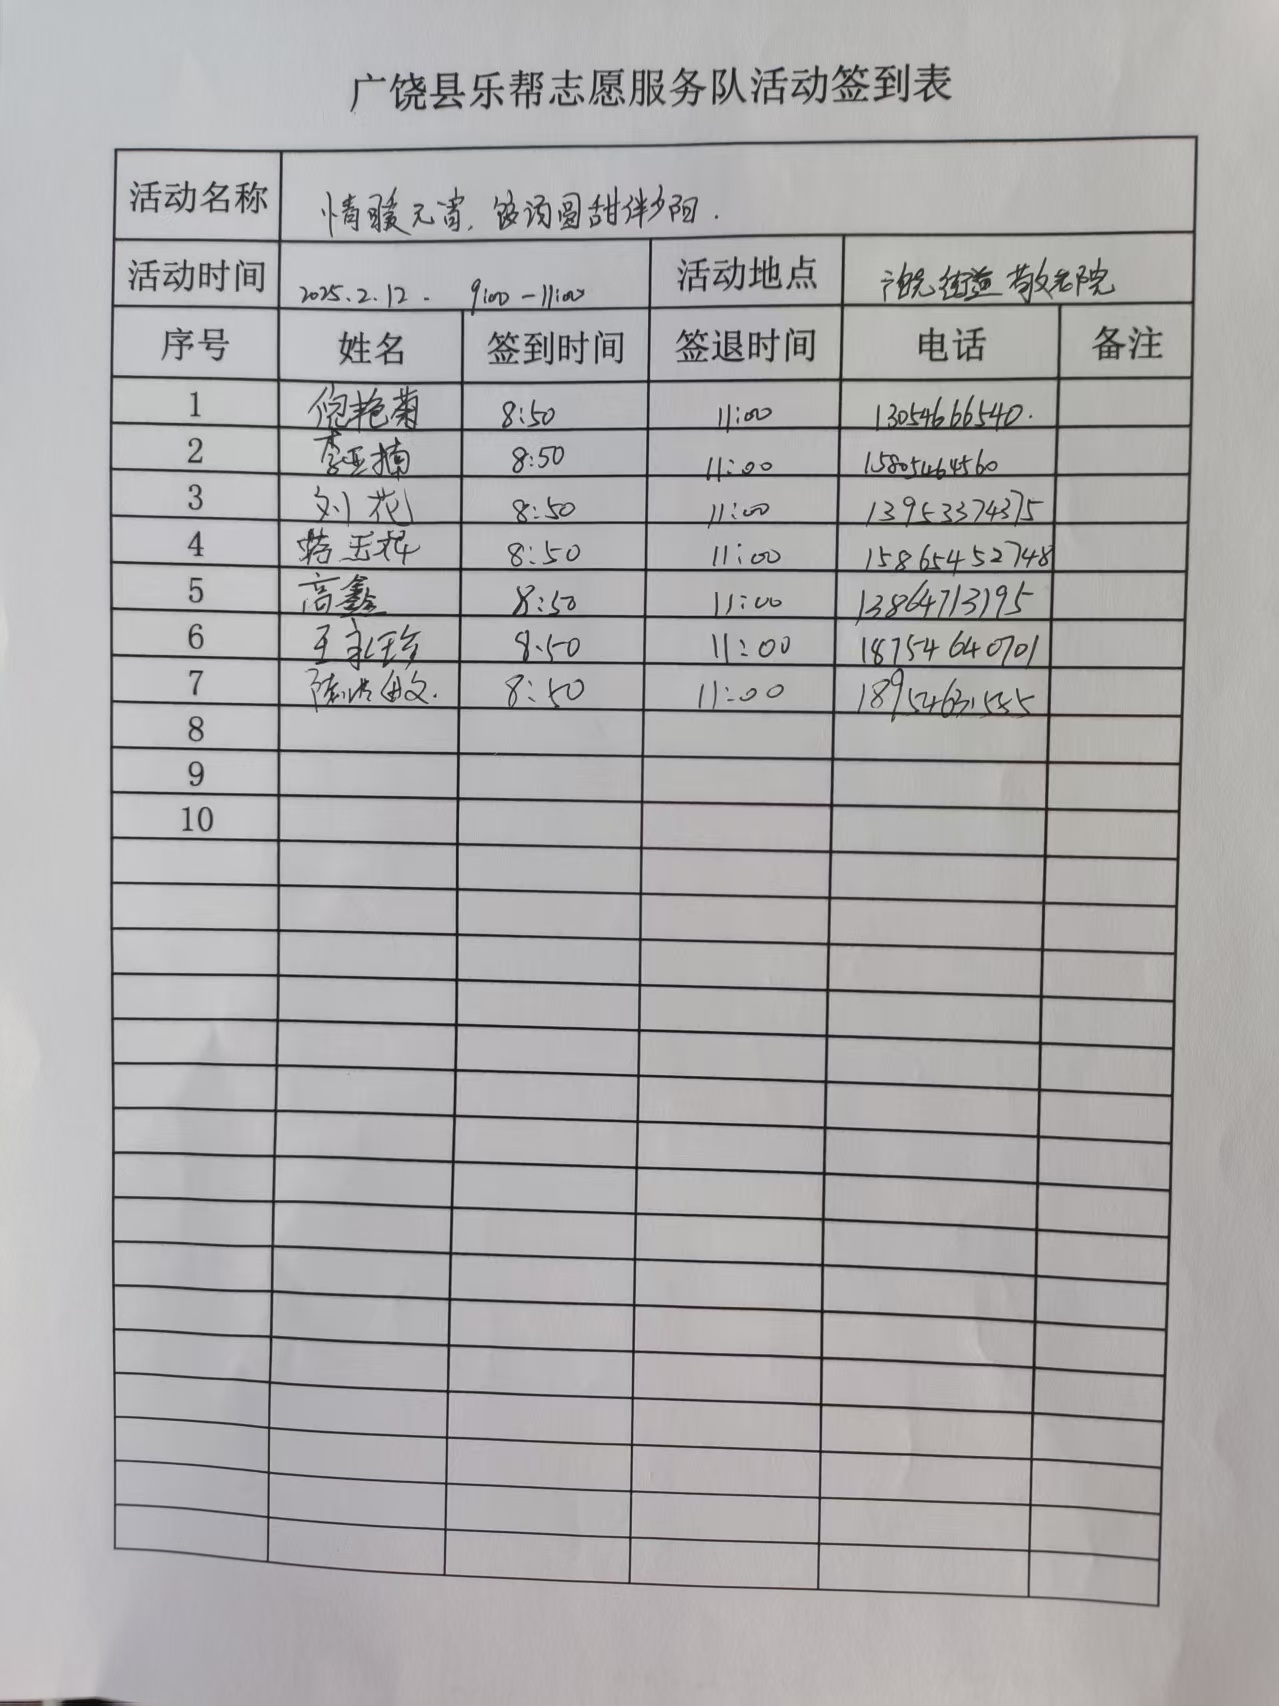 广饶县乐帮志愿服务队活动签到表
活动名称 情暖元宵，饺汤圆甜伴夕阳.
活动时间 2025.2.12. 9:00-11:00 活动地点 广饶街道敬老院
序号 姓名 签到时间 签退时间 电话 备注
1 倪艳菊 8:50 11:00 13054666540.
2 李亚楠 8:50 11:00 15805464560
3 刘花 8:50 11:00 13953374375
4 8:50 11:00 15865452748
5 高鑫 8:50 11:00 13864713195
6 王永珍 8:50 11:00 18754640701
7 陈洪敏. 8:50 11:00 18954631555
8
9
10